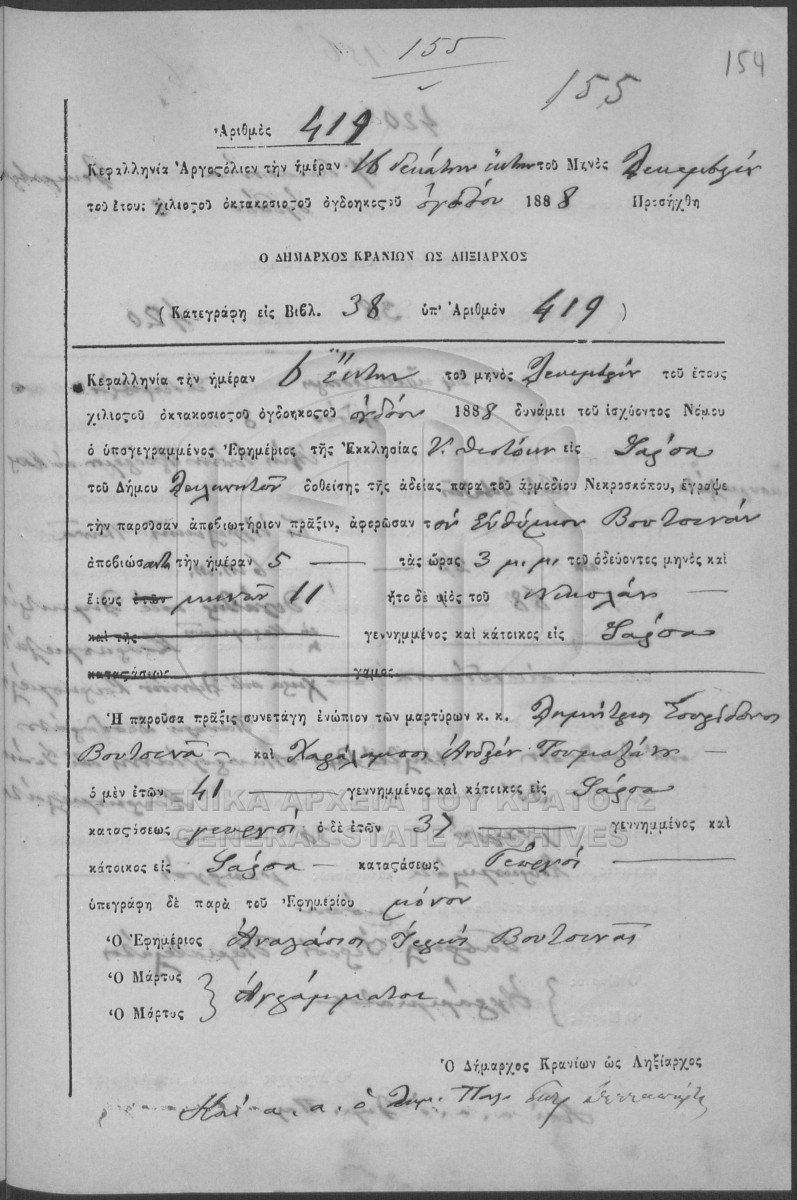 155
155
154
Ἀριθμὸς 419
Κεφαλληνία Ἀργοστόλιον τὴν ἡμέραν 16 δεκάτην ἕκτην τοῦ Μηνὸς Δεκεμβρίου
τοῦ ἔτους χιλιοστοῦ ὀκτακοσιοστοῦ ὀγδοηκοστοῦ ὀγδόου 1888 Προσήχθη
Ο ΔΗΜΑΡΧΟΣ ΚΡΑΝΙΩΝ ΩΣ ΛΗΞΙΑΡΧΟΣ
(Κατεγράφη εἰς Βιβλ. 38 ὑπ' Ἀριθμὸν 419)
Κεφαλληνία τὴν ἡμέραν 6 ἕκτην τοῦ μηνὸς Δεκεμβρίου τοῦ ἔτους
χιλιοστοῦ ὀκτακοσιοστοῦ ὀγδοηκοστοῦ ὀγδόου 1888 δυνάμει τοῦ ἰσχύοντος Νόμου
ὁ ὑπογεγραμμένος Ἐφημέριος τῆς Ἐκκλησίας εἰς
τοῦ Δήμου δοθείσης τῆς ἀδείας παρὰ τοῦ ἁρμοδίου Νεκροσκόπου, ἔγραψε
τὴν παροῦσαν ἀποβιωτήριον πρᾶξιν, ἀφορῶσαν τὸν Εὐθύμιον Βουτσινᾶν
ἀποβιώσαντα τὴν ἡμέραν 5 τὰς ὥρας 3 μ.μ. τοῦ ὁδεύοντος μηνὸς καὶ
ἔτους ἐτῶν μηνῶν 11 ἦτο δὲ υἱὸς τοῦ Νικολάου
καὶ τῆς γεννημμένος καὶ κάτοικος εἰς
καταστάσεως γαμος
Ἡ παροῦσα πρᾶξις συνετάγη ἐνώπιον τῶν μαρτύρων κ. κ. Δημητρίου Σπυρίδωνος
Βουτσινᾶ καὶ Χαραλάμπου Ἀνδρέου
ὁ μὲν ἐτῶν 41 γεννημμένος καὶ κάτοικος εἰς
καταστάσεως γεωργοῦ ὁ δὲ ἐτῶν 37 γεννημμένος καὶ
κάτοικος εἰς καταστάσεως Γεωργοῦ
ὑπεγράφη δὲ παρὰ τοῦ Ἐφημερίου μόνον
Ὁ Ἐφημέριος Ἀναστάσιος Ἱερεὺς Βουτσινᾶς
Ὁ Μάρτυς
Ὁ Μάρτυς
Ἀγράμματοι
Ὁ Δήμαρχος Κρανίων ὡς Ληξίαρχος
ΓΕΝΙΚΑ ΑΡΧΕΙΑ ΤΟΥ ΚΡΑΤΟΥΣ
GENERAL STATE ARCHIVES